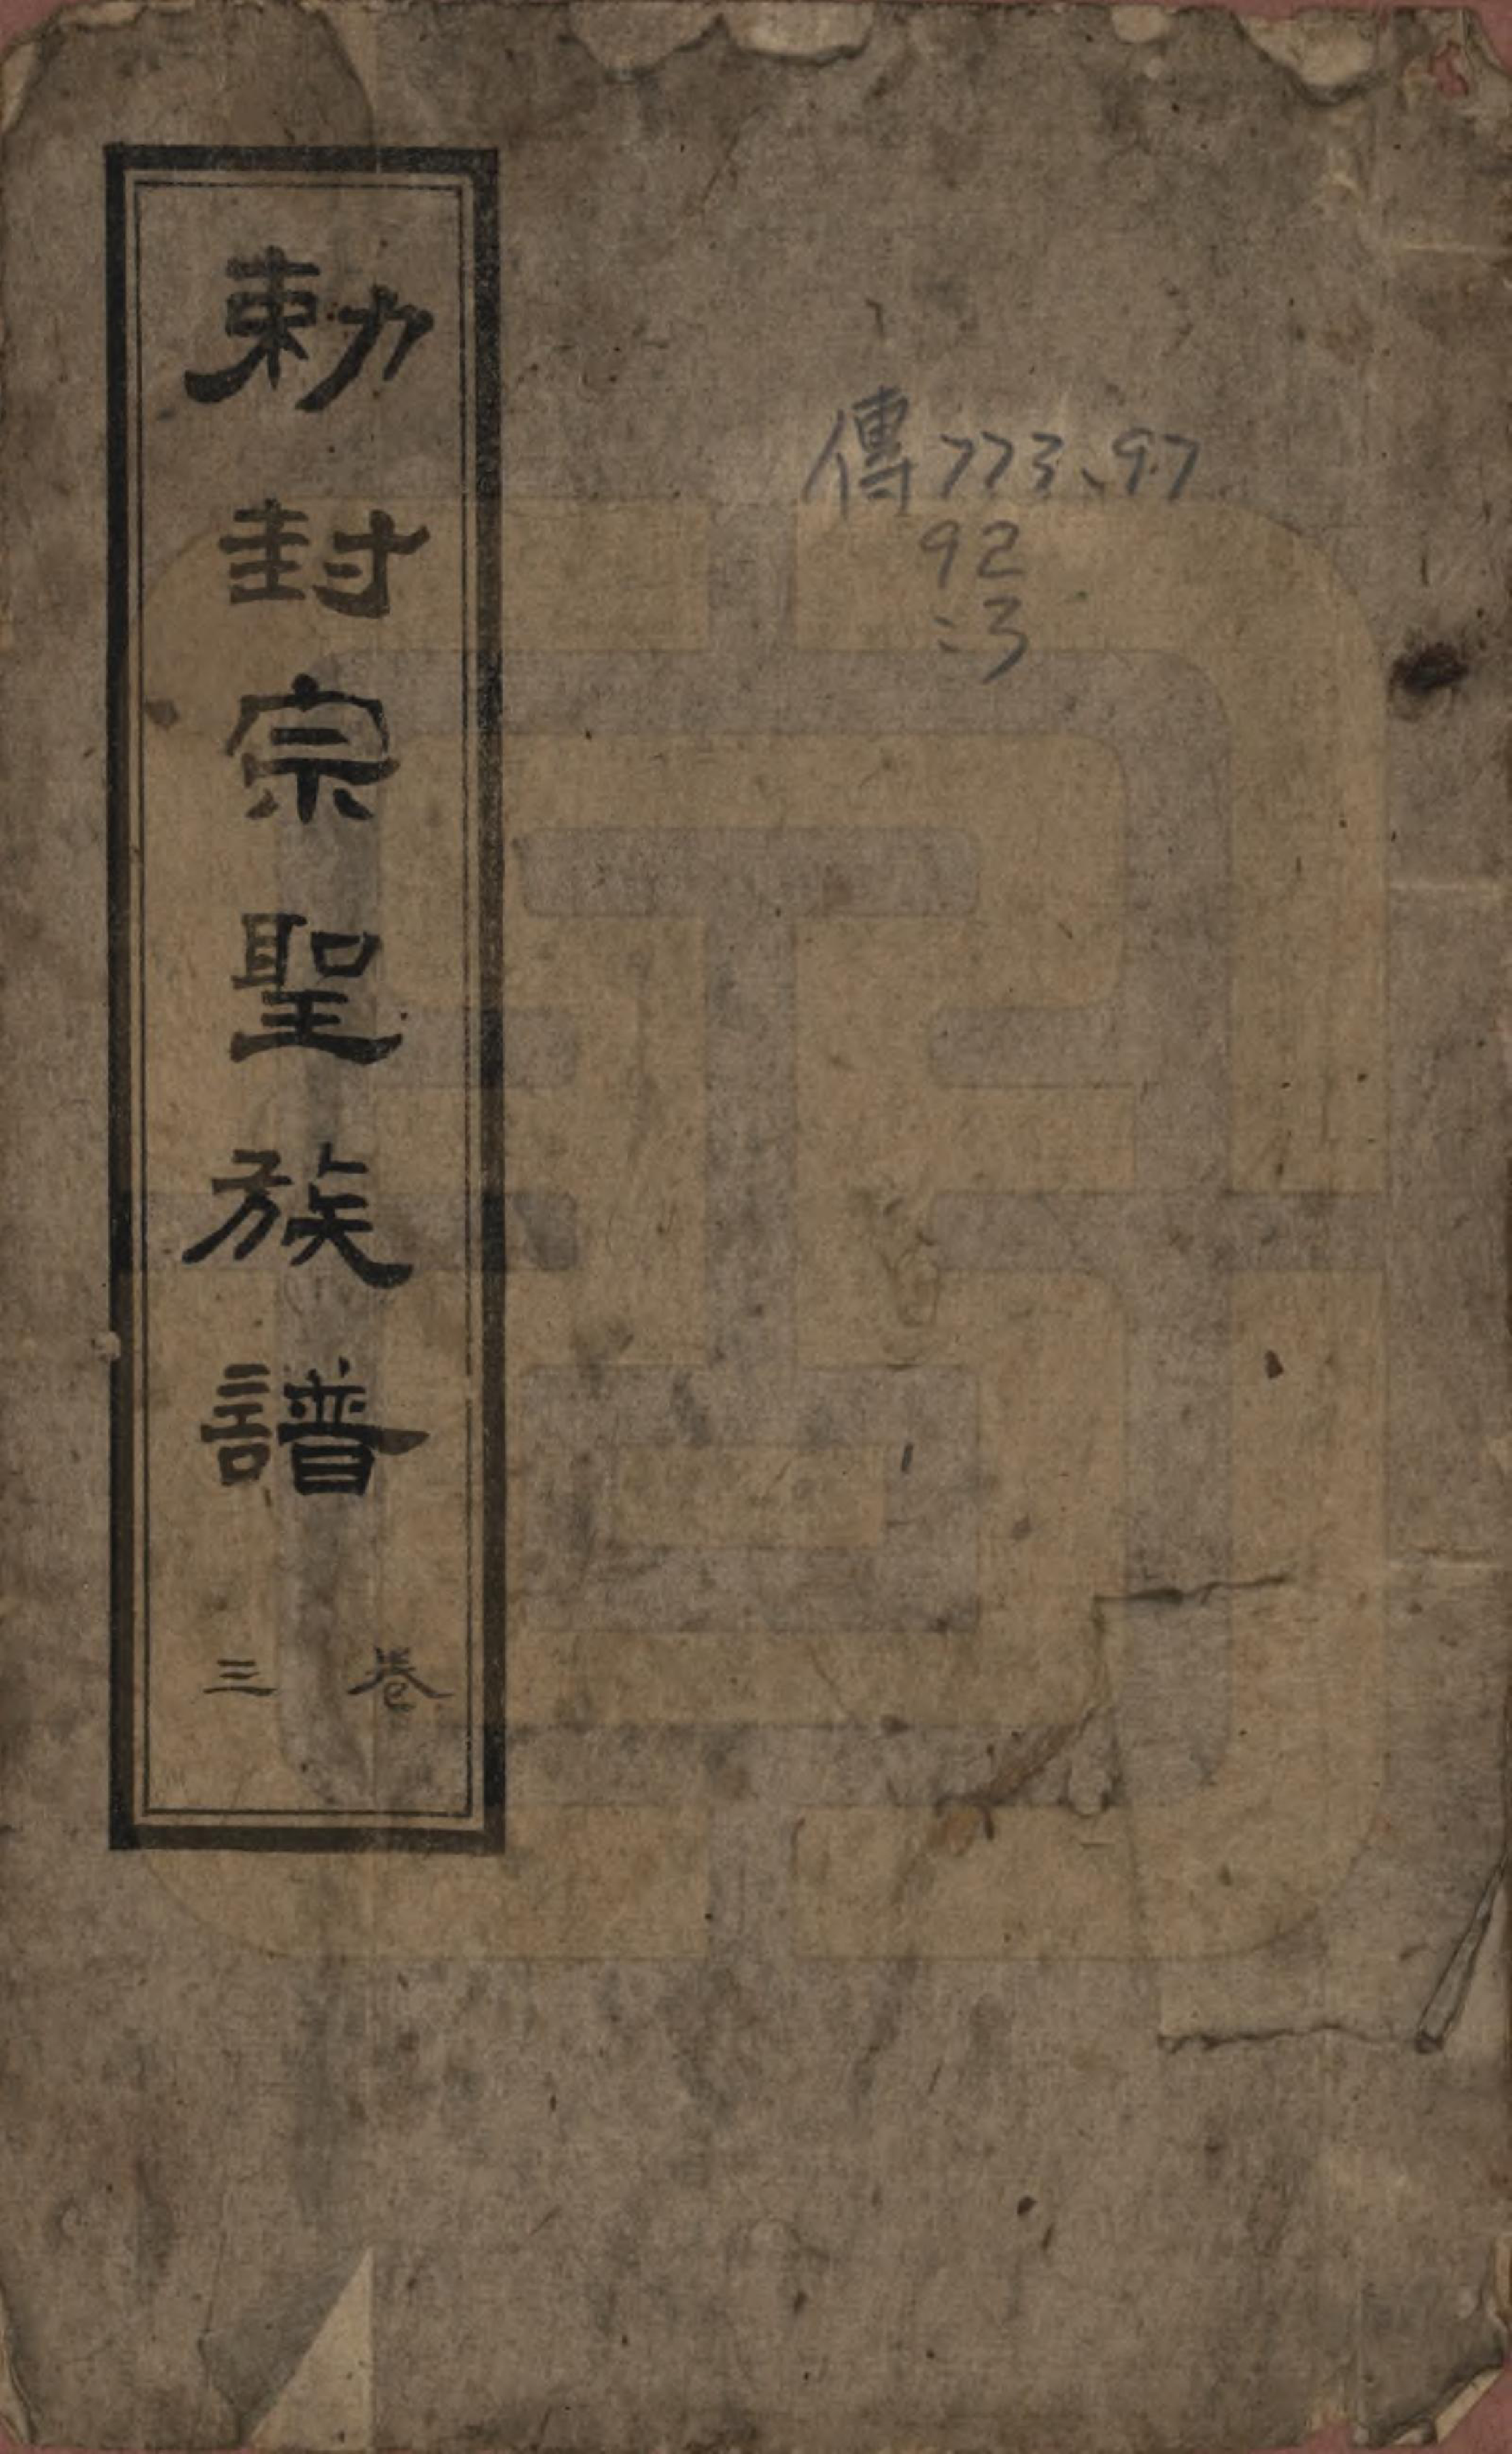 傳773.97
92
:3
勅封宗聖族譜
卷三